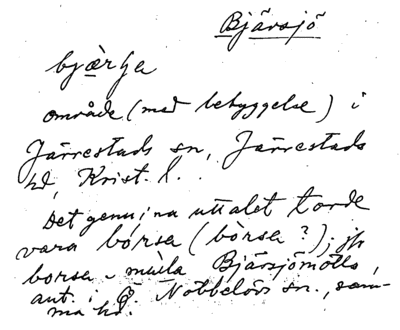 Bjärsjö
bjærʃa
område (med bebyggelse) i
Järrestads sn, Järrestads
hd, Krist. l.
Det genuina uttalet torde
vara bórsa (bòrsa?), jfr
borsa-mölla Bjärsjömölla,
ant. i Ö. Nöbbelövs sn, sam-
ma hd.